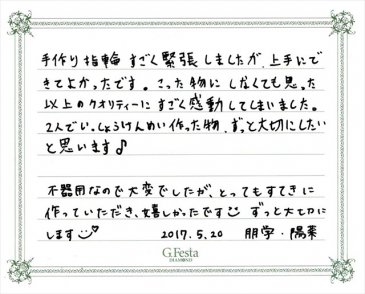 手作り指輪 すごく緊張しましたが、上手にで
きてよかったです。こった物に しなくても思った
以上のクオリティーに すごく感動してしまいました。
2人でいっしょうけんめい作った物、ずっと大切にしたい
と思います♪
不器用なので大変でしたが、とってもすてきに
作っていただき、嬉しかったです☺ ずっと大切に
します☺♡ 2017.5.20 朋宇・陽菜
G.Festa
DIAMOND